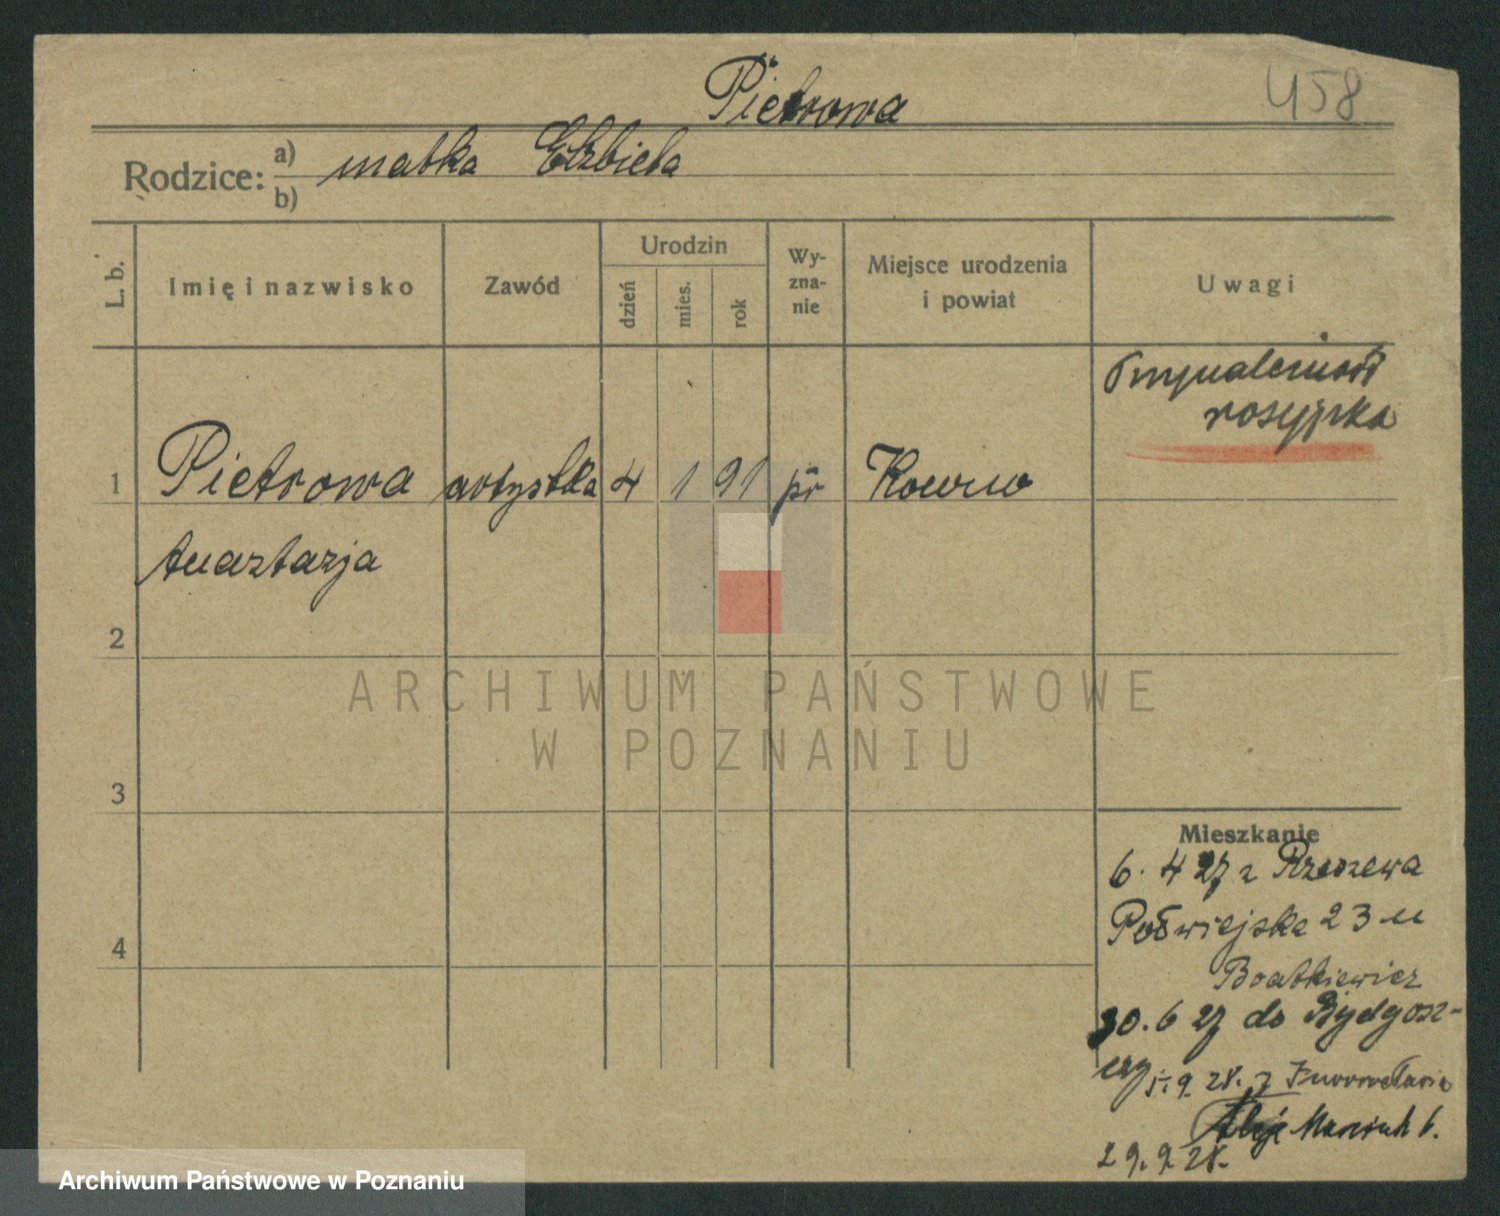 458
Pietrowa
Rodzice: a) matka Elżbieta
b)
L. b.
Imię i nazwisko
Zawód
Urodzin
dzień
mies.
rok
Wy-
zna-
nie
Miejsce urodzenia
i powiat
Uwagi
rosyjska
1 Pietrowa artystka 4 1 91 pr Kowno
Anastazja
2
3
4
Mieszkanie
6. 4 27 z Rzeszowa
Półwiejska 23 u
30. 6 27 do Bydgosz-
czy 5. 9. 28. z Inowrocławia
Aleje Marcink 6.
29. 9. 28.
ARCHIWUM PAŃSTWOWE
W POZNANIU
Archiwum Państwowe w Poznaniu